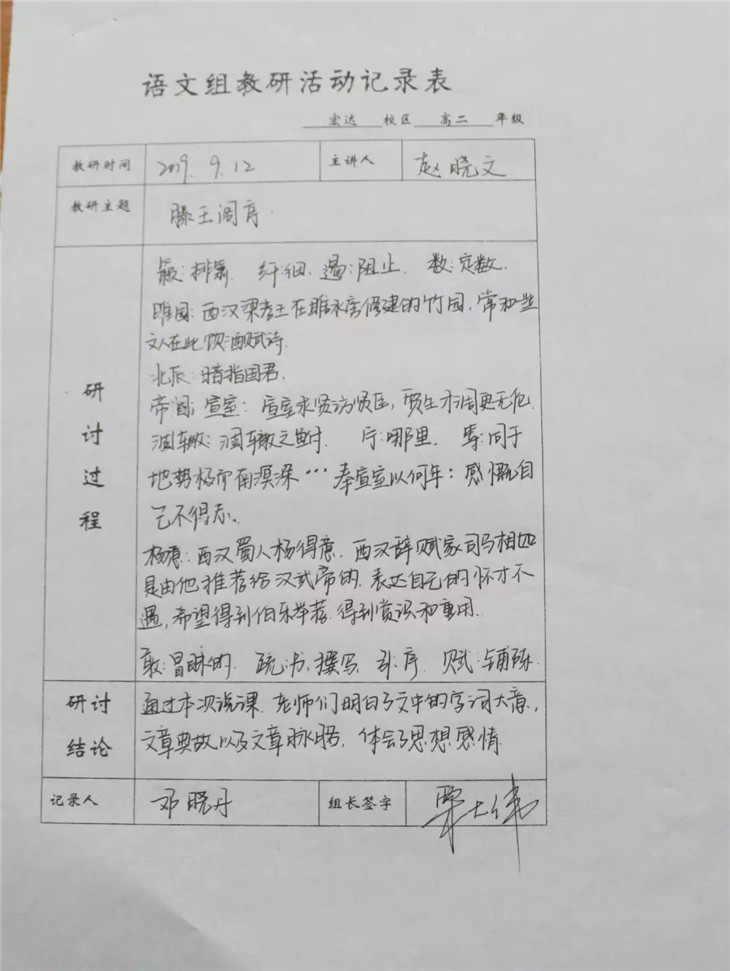 语文组教研活动记录表
宏达 校区 高二 年级
教研时间 2019.9.12 主讲人 赵晓文
教研主题 滕王阁序
研讨过程
籁:排箫. 纤:细. 遏:阻止. 数:定数.
睢园:西汉梁孝王在睢水旁修建的竹园,常和些
文人在此饮酒赋诗.
北辰:暗指国君.
帝阍;宣室:宣室求贤访贤臣,贾生才调更无伦.
涸辙:涸辙之鲋. 宁:哪里.
地势极而南溟深…奉宣室以何年:感慨自
己不得志.
杨意:西汉蜀人杨得意.西汉辞赋家司马相如
是由他推荐给汉武帝的.表达自己的怀才不
遇,希望得到伯乐举荐.得到赏识和重用.
敢:冒昧的. 疏:书,撰写. 引:序. 赋:铺陈.
研讨结论
通过本次说课.老师们明白了文中的字词大意,
文章典故以及文章脉络.体会了思想感情
记录人 邓晓丹 组长签字